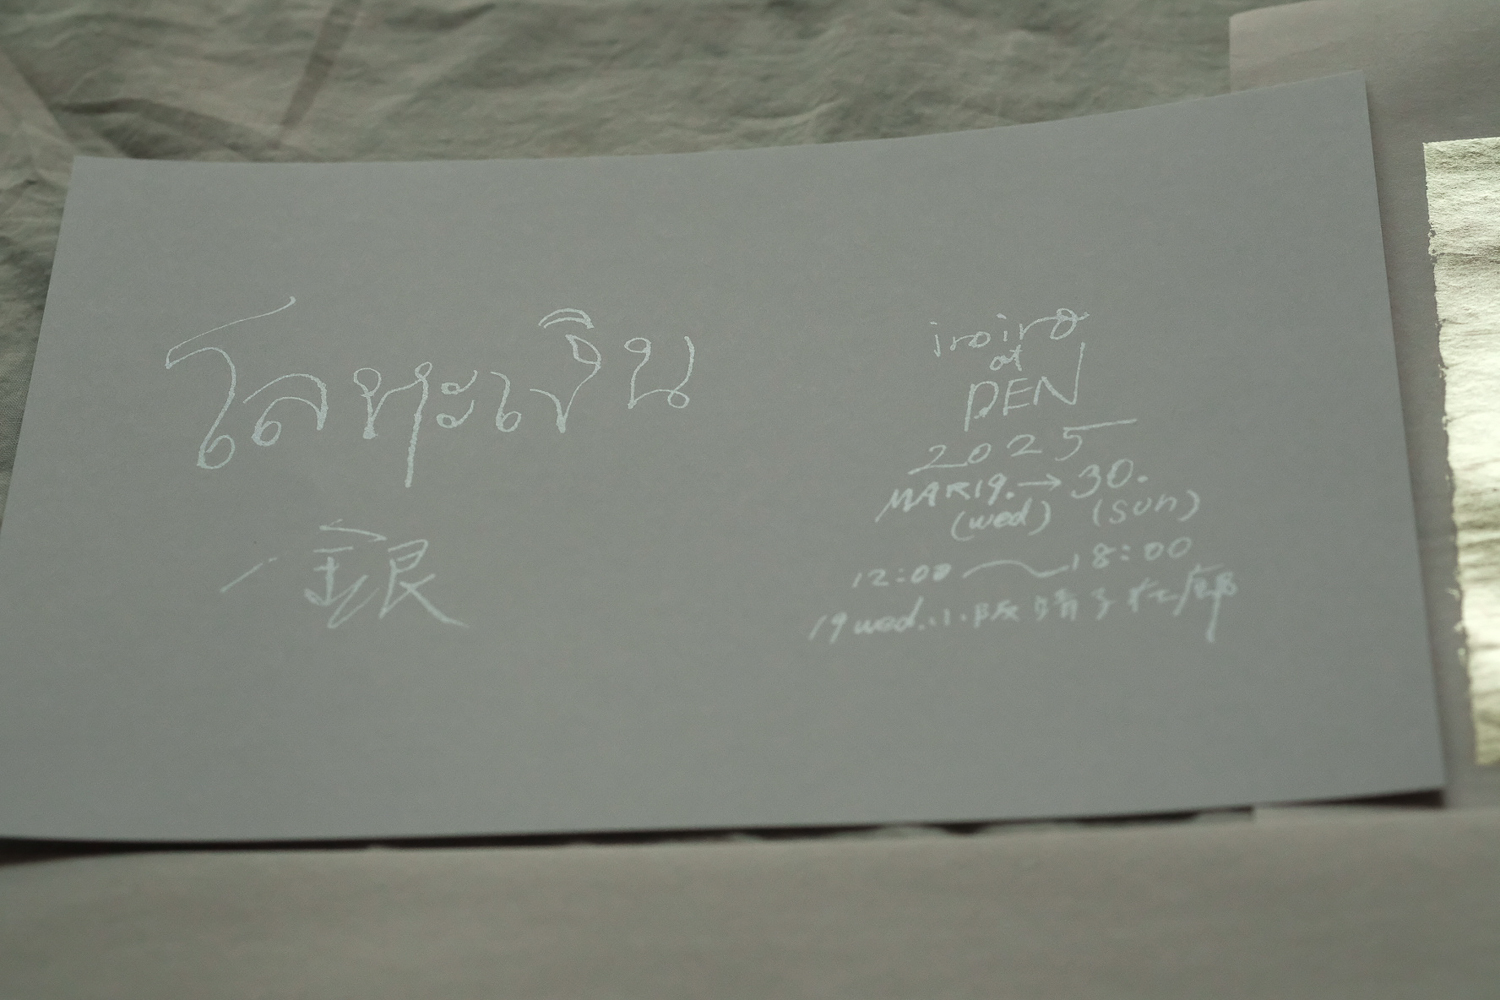 โลหะเงิน
銀
iroiro
at
PEN
2025
MAR19.→30.
(wed) (sun)
12:00〜18:00
19wed.小阪靖子在廊